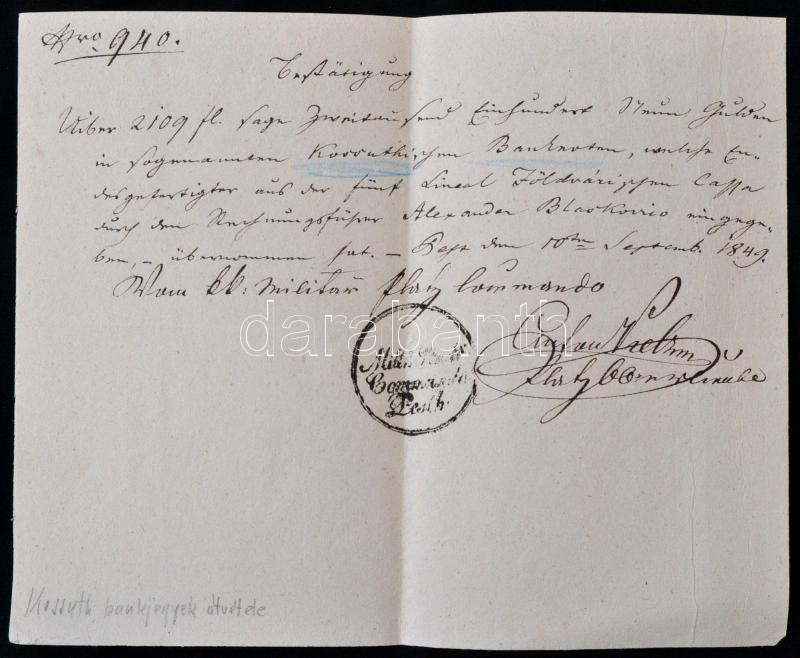 Nro 940.
Bestätigung
Über 2109 fl. sage Zweitausend Einhundert Neun Gulden
in sogenannten Kossuthischen Banknoten, welche En-
desgefertigter aus der fünf Lineal Földvárischen Cassa
durch den Rechnungsführer Alexander Blaskovics eingege-
ben, - übernommen hat. - Pest den 10ten Septemb. 1849.
Vom kk: Militär Platz Commando
Platz
darabanth
Milit. Platz
Commando
Pesth
Kossuth bankjegyek átvétele